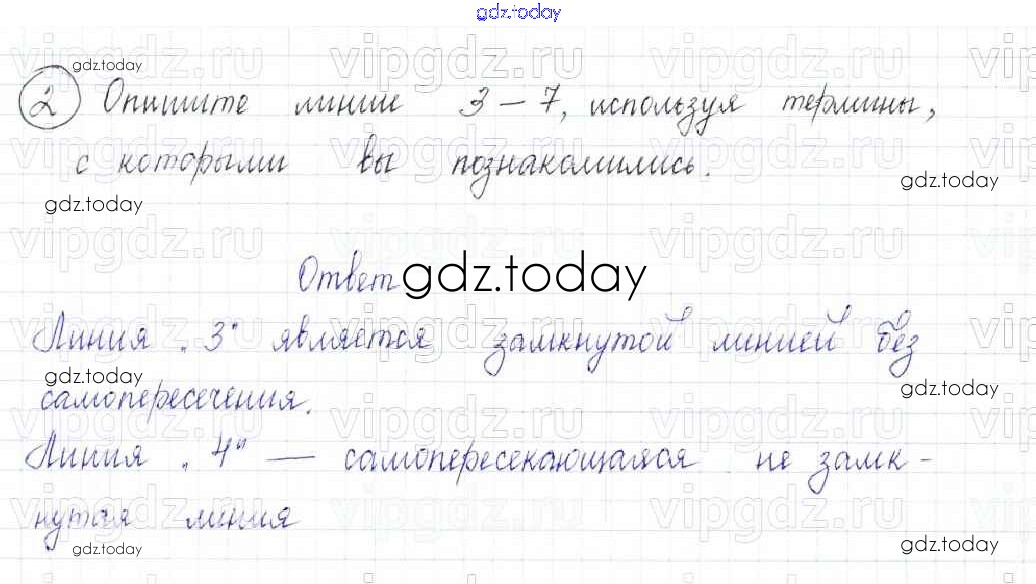 gdz.today
gdz.today
② Опишите линие 3 – 7, используя термины,
с которыми вы познакомились.
gdz.today
gdz.today
Ответ gdz.today
Линия „3" является замкнутой линией без
gdz.today
gdz.today
самопересечения.
Линия „4" — самопересекающаяся не замк-
нутая линия
gdz.today
gdz.today
vipgdz.ru